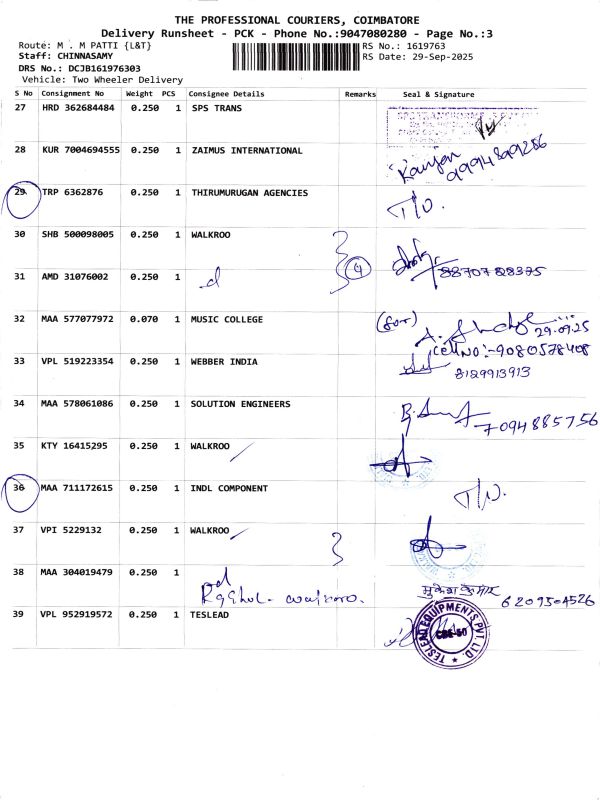 THE PROFESSIONAL COURIERS, COIMBATORE
Delivery Runsheet - PCK - Phone No.:9047080280 - Page No.:3
Route: M . M PATTI {L&T}
RS No.: 1619763
Staff: CHINNASAMY
RS Date: 29-Sep-2025
DRS No.: DCJB161976303
Vehicle: Two Wheeler Delivery
S No Consignment No Weight PCS Consignee Details Remarks Seal & Signature
27 HRD 362684484 0.250 1 SPS TRANS
28 KUR 7004694555 0.250 1 ZAIMUS INTERNATIONAL
9994899286
29 TRP 6362876 0.250 1 THIRUMURUGAN AGENCIES
30 SHB 500098005 0.250 1 WALKROO
4
31 AMD 31076002 0.250 1 d
32 MAA 577077972 0.070 1 MUSIC COLLEGE (for)
29.09.25
Cell NO:-9080578408
33 VPL 519223354 0.250 1 WEBBER INDIA 8129913913
34 MAA 578061086 0.250 1 SOLUTION ENGINEERS
7094885756
35 KTY 16415295 0.250 1 WALKROO
36 MAA 711172615 0.250 1 INDL COMPONENT
37 VPI 5229132 0.250 1 WALKROO
38 MAA 304019479 0.250 1 d
मुकेश कुमार
6209504526
39 VPL 952919572 0.250 1 TESLEAD
TESLEAD EQUIPMENTS PVT. LTD.
CBE-50